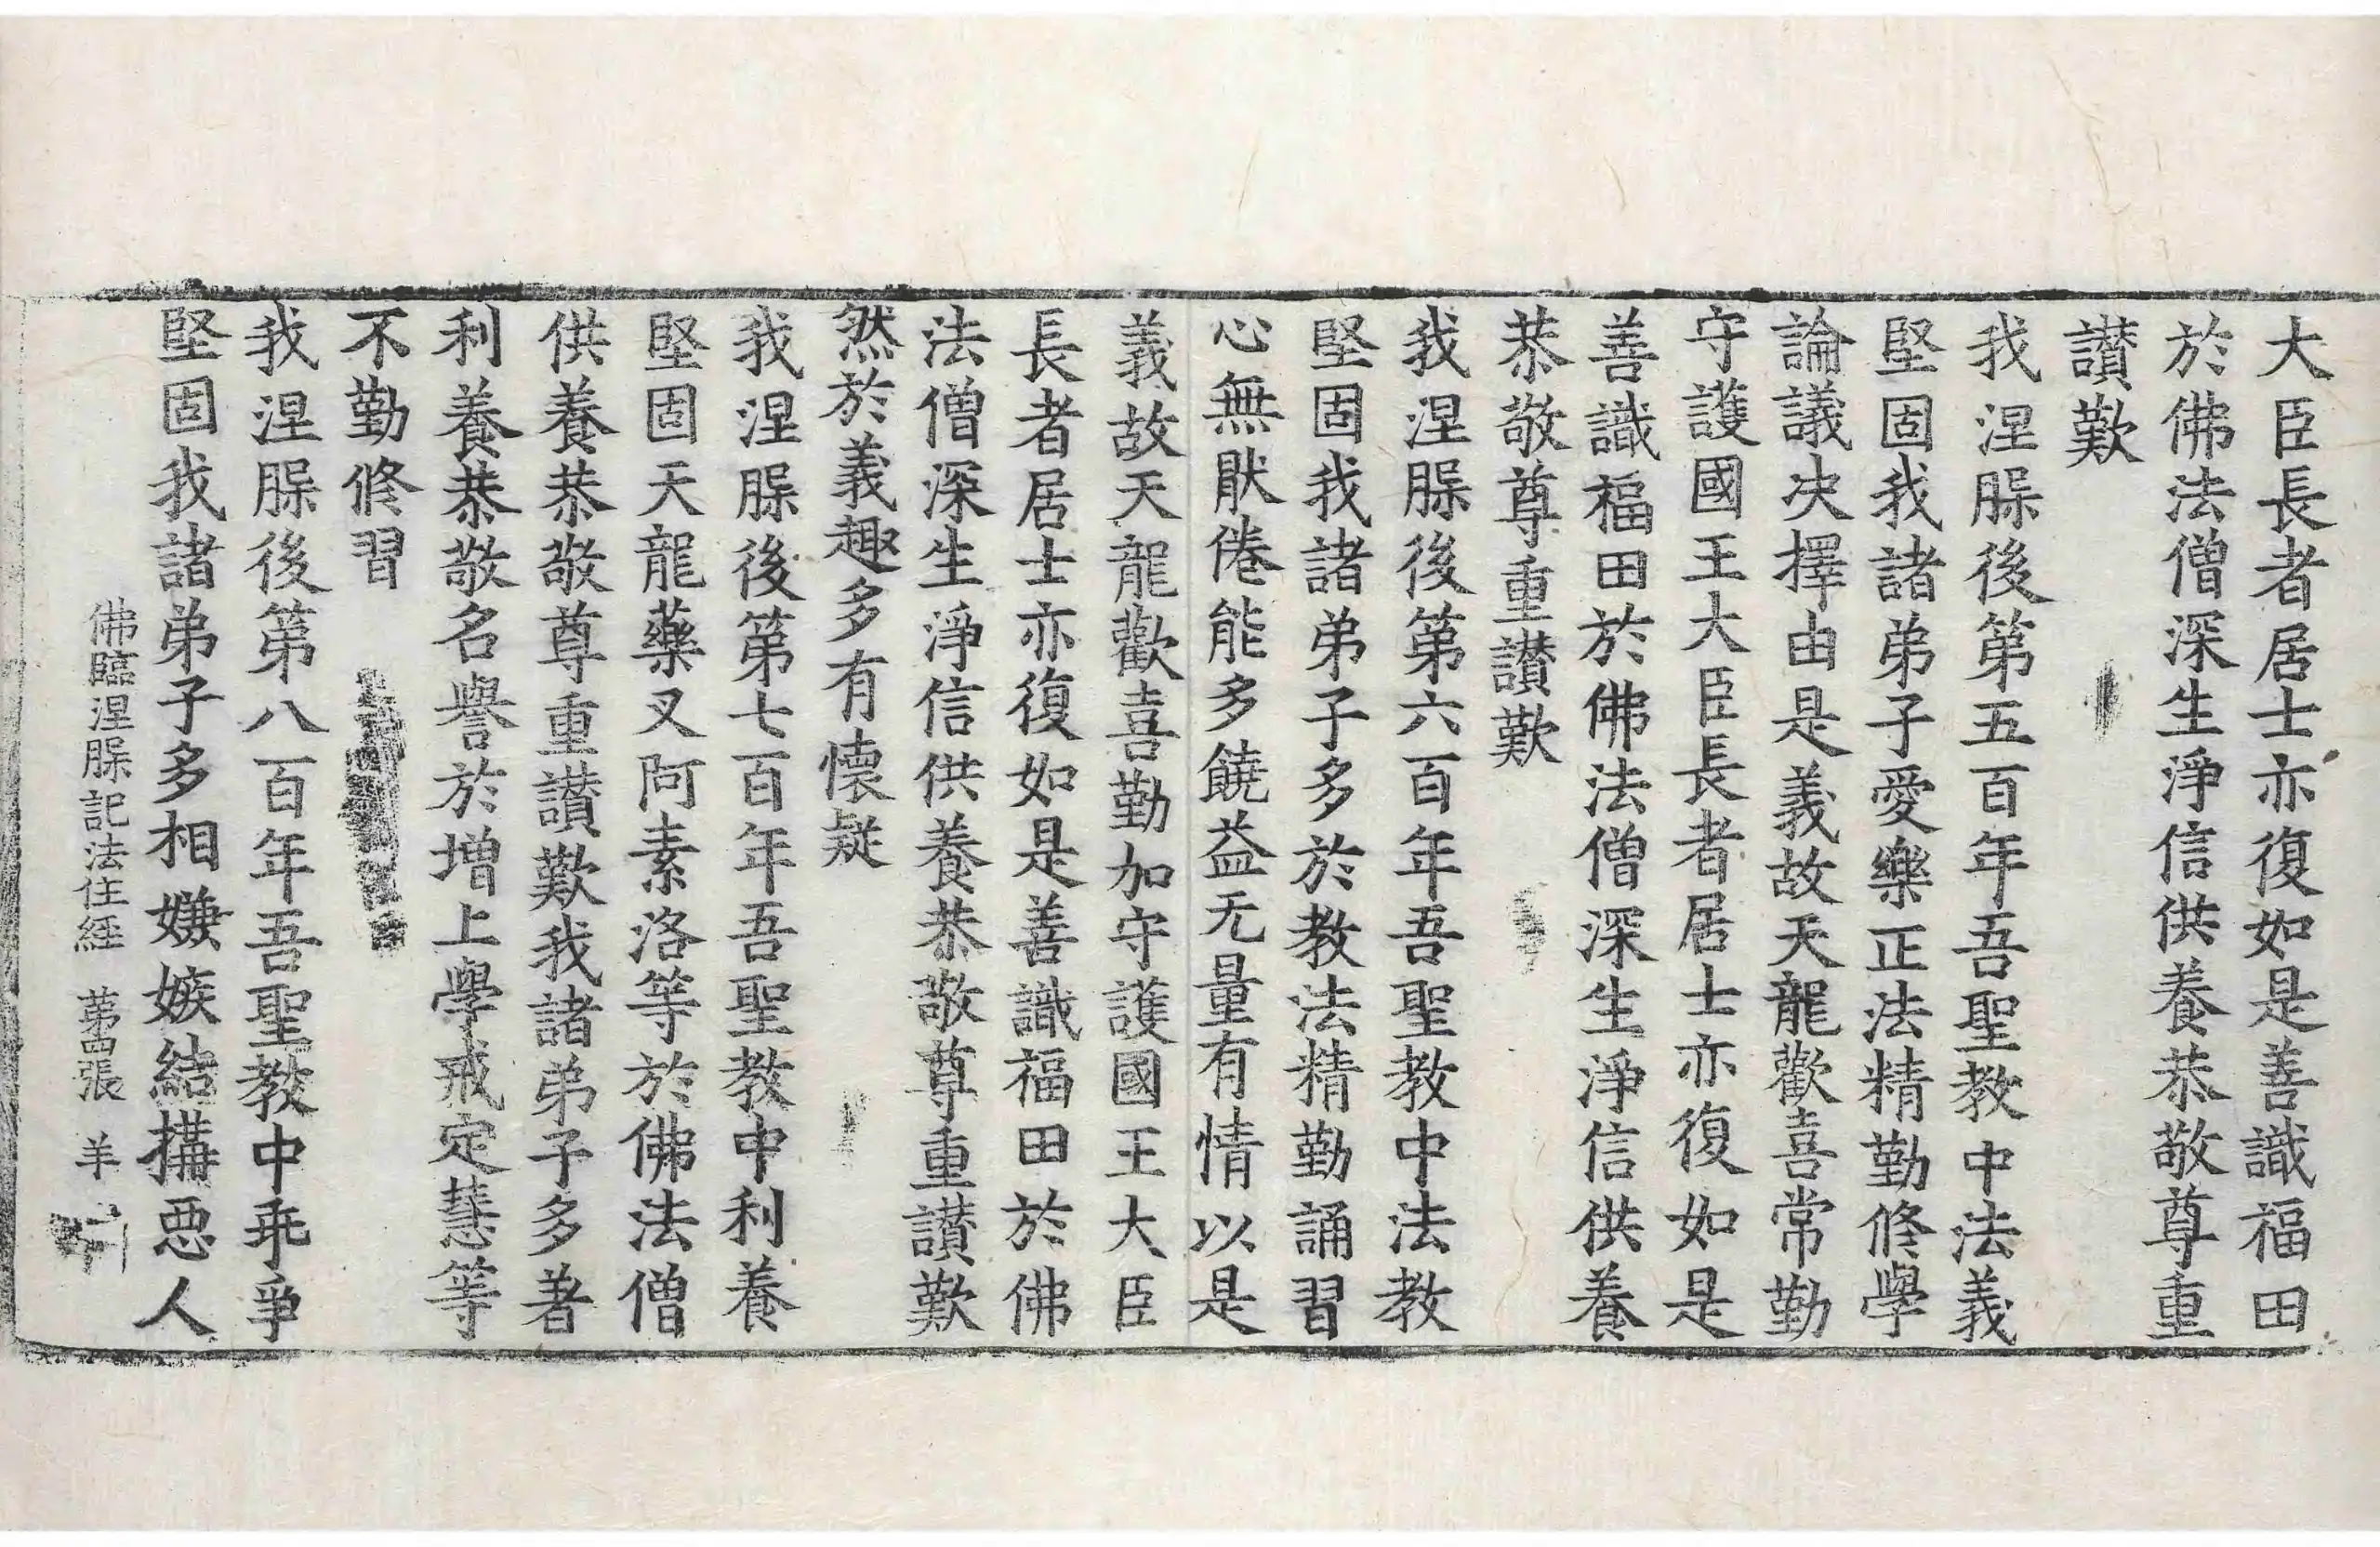 大臣長者居士亦復如是善識福田
於佛法僧深生淨信供養恭敬尊重
讃歎
我涅槃後第五百年吾聖教中法義
堅固我諸弟子愛樂正法精勤修學
論議决擇由是義故天龍歡喜常勤
守護國王大臣長者居士亦復如是
善識福田於佛法僧深生淨信供養
恭敬尊重讃歎
我涅槃後第六百年吾聖教中法教
堅固我諸弟子多於教法精勤誦習
心無猒倦能多饒益无量有情以是
義故天龍歡喜勤加守護國王大臣
長者居士亦復如是善識福田於佛
法僧深生淨信供養恭敬尊重讃歎
然於義趣多有懷疑
我涅槃後第七百年吾聖教中利養
堅固天龍藥叉阿素洛等於佛法僧
供養恭敬尊重讃歎我諸弟子多著
利養恭敬名譽於增上學戒定慧等
不勤修習
我涅槃後第八百年吾聖教中乖爭
堅固我諸弟子多相嫌嫉結搆惡人
佛臨涅槃記法住經 第四張 羊